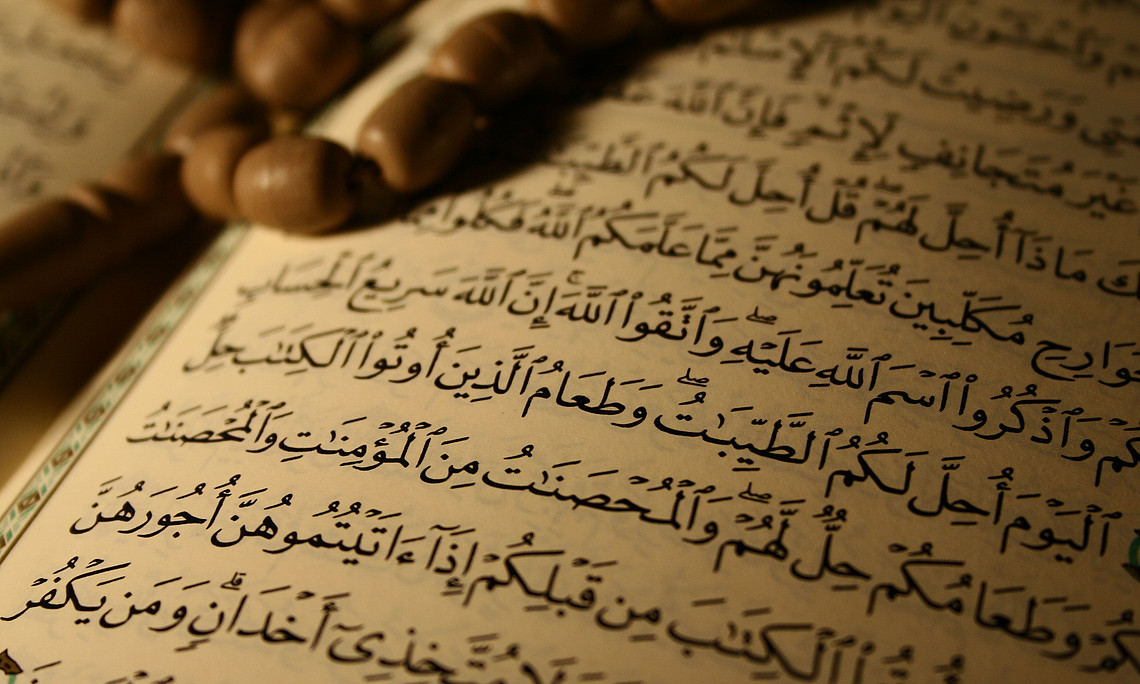 وَرَضِيتُ لَكُمُ ٱلْإِسْلَٰمَ
غَيْرَ مُتَجَانِفٍ لِّإِثْمٍ فَإِنَّ ٱللَّهَ
مَاذَآ أُحِلَّ لَهُمْ ۖ قُلْ أُحِلَّ لَكُمُ ٱلطَّيِّبَٰتُ
مُكَلِّبِينَ تُعَلِّمُونَهُنَّ مِمَّا عَلَّمَكُمُ ٱللَّهُ فَكُلُوا۟
وَٱذْكُرُوا۟ ٱسْمَ ٱللَّهِ عَلَيْهِ ۖ وَٱتَّقُوا۟ ٱللَّهَ ۚ إِنَّ ٱللَّهَ سَرِيعُ ٱلْحِسَابِ
ٱلْيَوْمَ أُحِلَّ لَكُمُ ٱلطَّيِّبَٰتُ ۖ وَطَعَامُ ٱلَّذِينَ أُوتُوا۟ ٱلْكِتَٰبَ حِلٌّ
وَطَعَامُكُمْ حِلٌّ لَّهُمْ ۖ وَٱلْمُحْصَنَٰتُ مِنَ ٱلْمُؤْمِنَٰتِ وَٱلْمُحْصَنَٰتُ
ٱلْكِتَٰبَ مِن قَبْلِكُمْ إِذَآ ءَاتَيْتُمُوهُنَّ أُجُورَهُنَّ
مُتَّخِذِىٓ أَخْدَانٍ ۗ وَمَن يَكْفُرْ